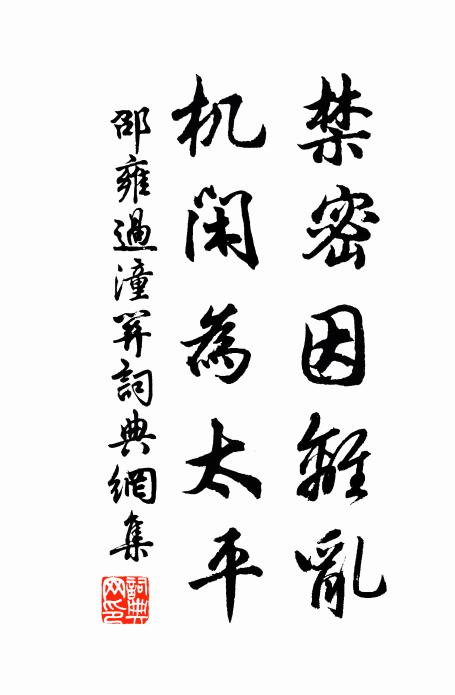 禁密因離亂
机閑為太平
邵雍過潼關詞典網集
詞典網印